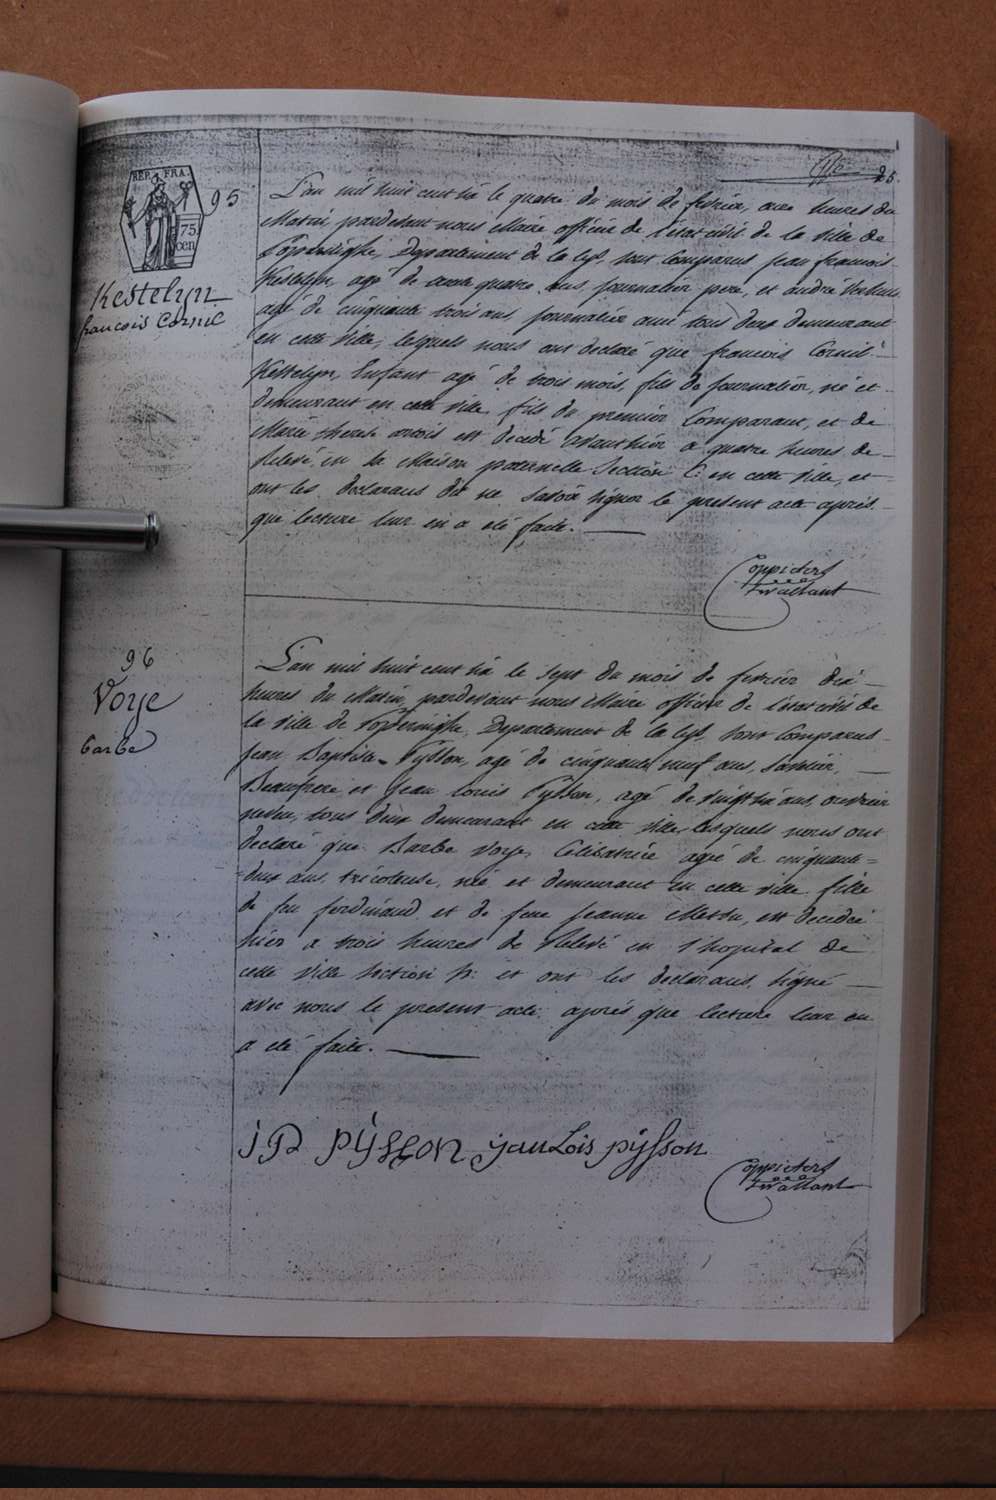 25.
REP. FRA.
75
cen
95
Kestelyn
francois Cornil
L'an mil huit cent six le quatre du mois de fevrier, onze heures du
Matin pardevant nous Maire officier de l'état civil de la ville de
Poperinghe, Departement de la Lys, sont Comparus Jean francois
Kestelyn, agé de quatre ans, journalier pere, et André
agé de cinquante trois ans journalier ami tous deux demeurant
en cette ville, lesquels nous ont declaré que francois Cornil
Kestelyn, Enfant agé de trois mois, fils de journalier, né et
demeurant en cette ville fils du premier Comparant, et de
Marie therese artois est decedé avanthier a quatre heures de
Relevé, en la Maison paternelle Section C: en cette ville, et
ont les declarans dit ne savoir signer le present acte après
que lecture leur en a eté faite.
Coppieters
Twallant
96
Voye
barbe
L'an mil huit cent six le sept du mois de fevrier dix
heures du Matin pardevant nous Maire officier de l'état civil de
la ville de Poperinghe, Departement de la Lys, sont Comparus
Jean Baptiste Pysson, agé de cinquante neuf ans, Savetier,
Beaufrere et Jean Louis Pysson, agé de vingt six ans, ouvrier
neveu, tous deux demeurant en cette ville, lesquels nous ont
declaré que Barbe Voye, Celibatrice agée de cinquante=
=deux ans, tricoteuse, née et demeurant en cette ville fille
de feu ferdinand et de feue Jeanne Mettu, est decedée
hier a trois heures de Relevé en l'hopital de
cette ville Section h: et ont les declarans, signé
avec nous le present acte après que lecture leur en
a eté faite.
J B PYSSON yan Lois pysson
Coppieters
Twallant